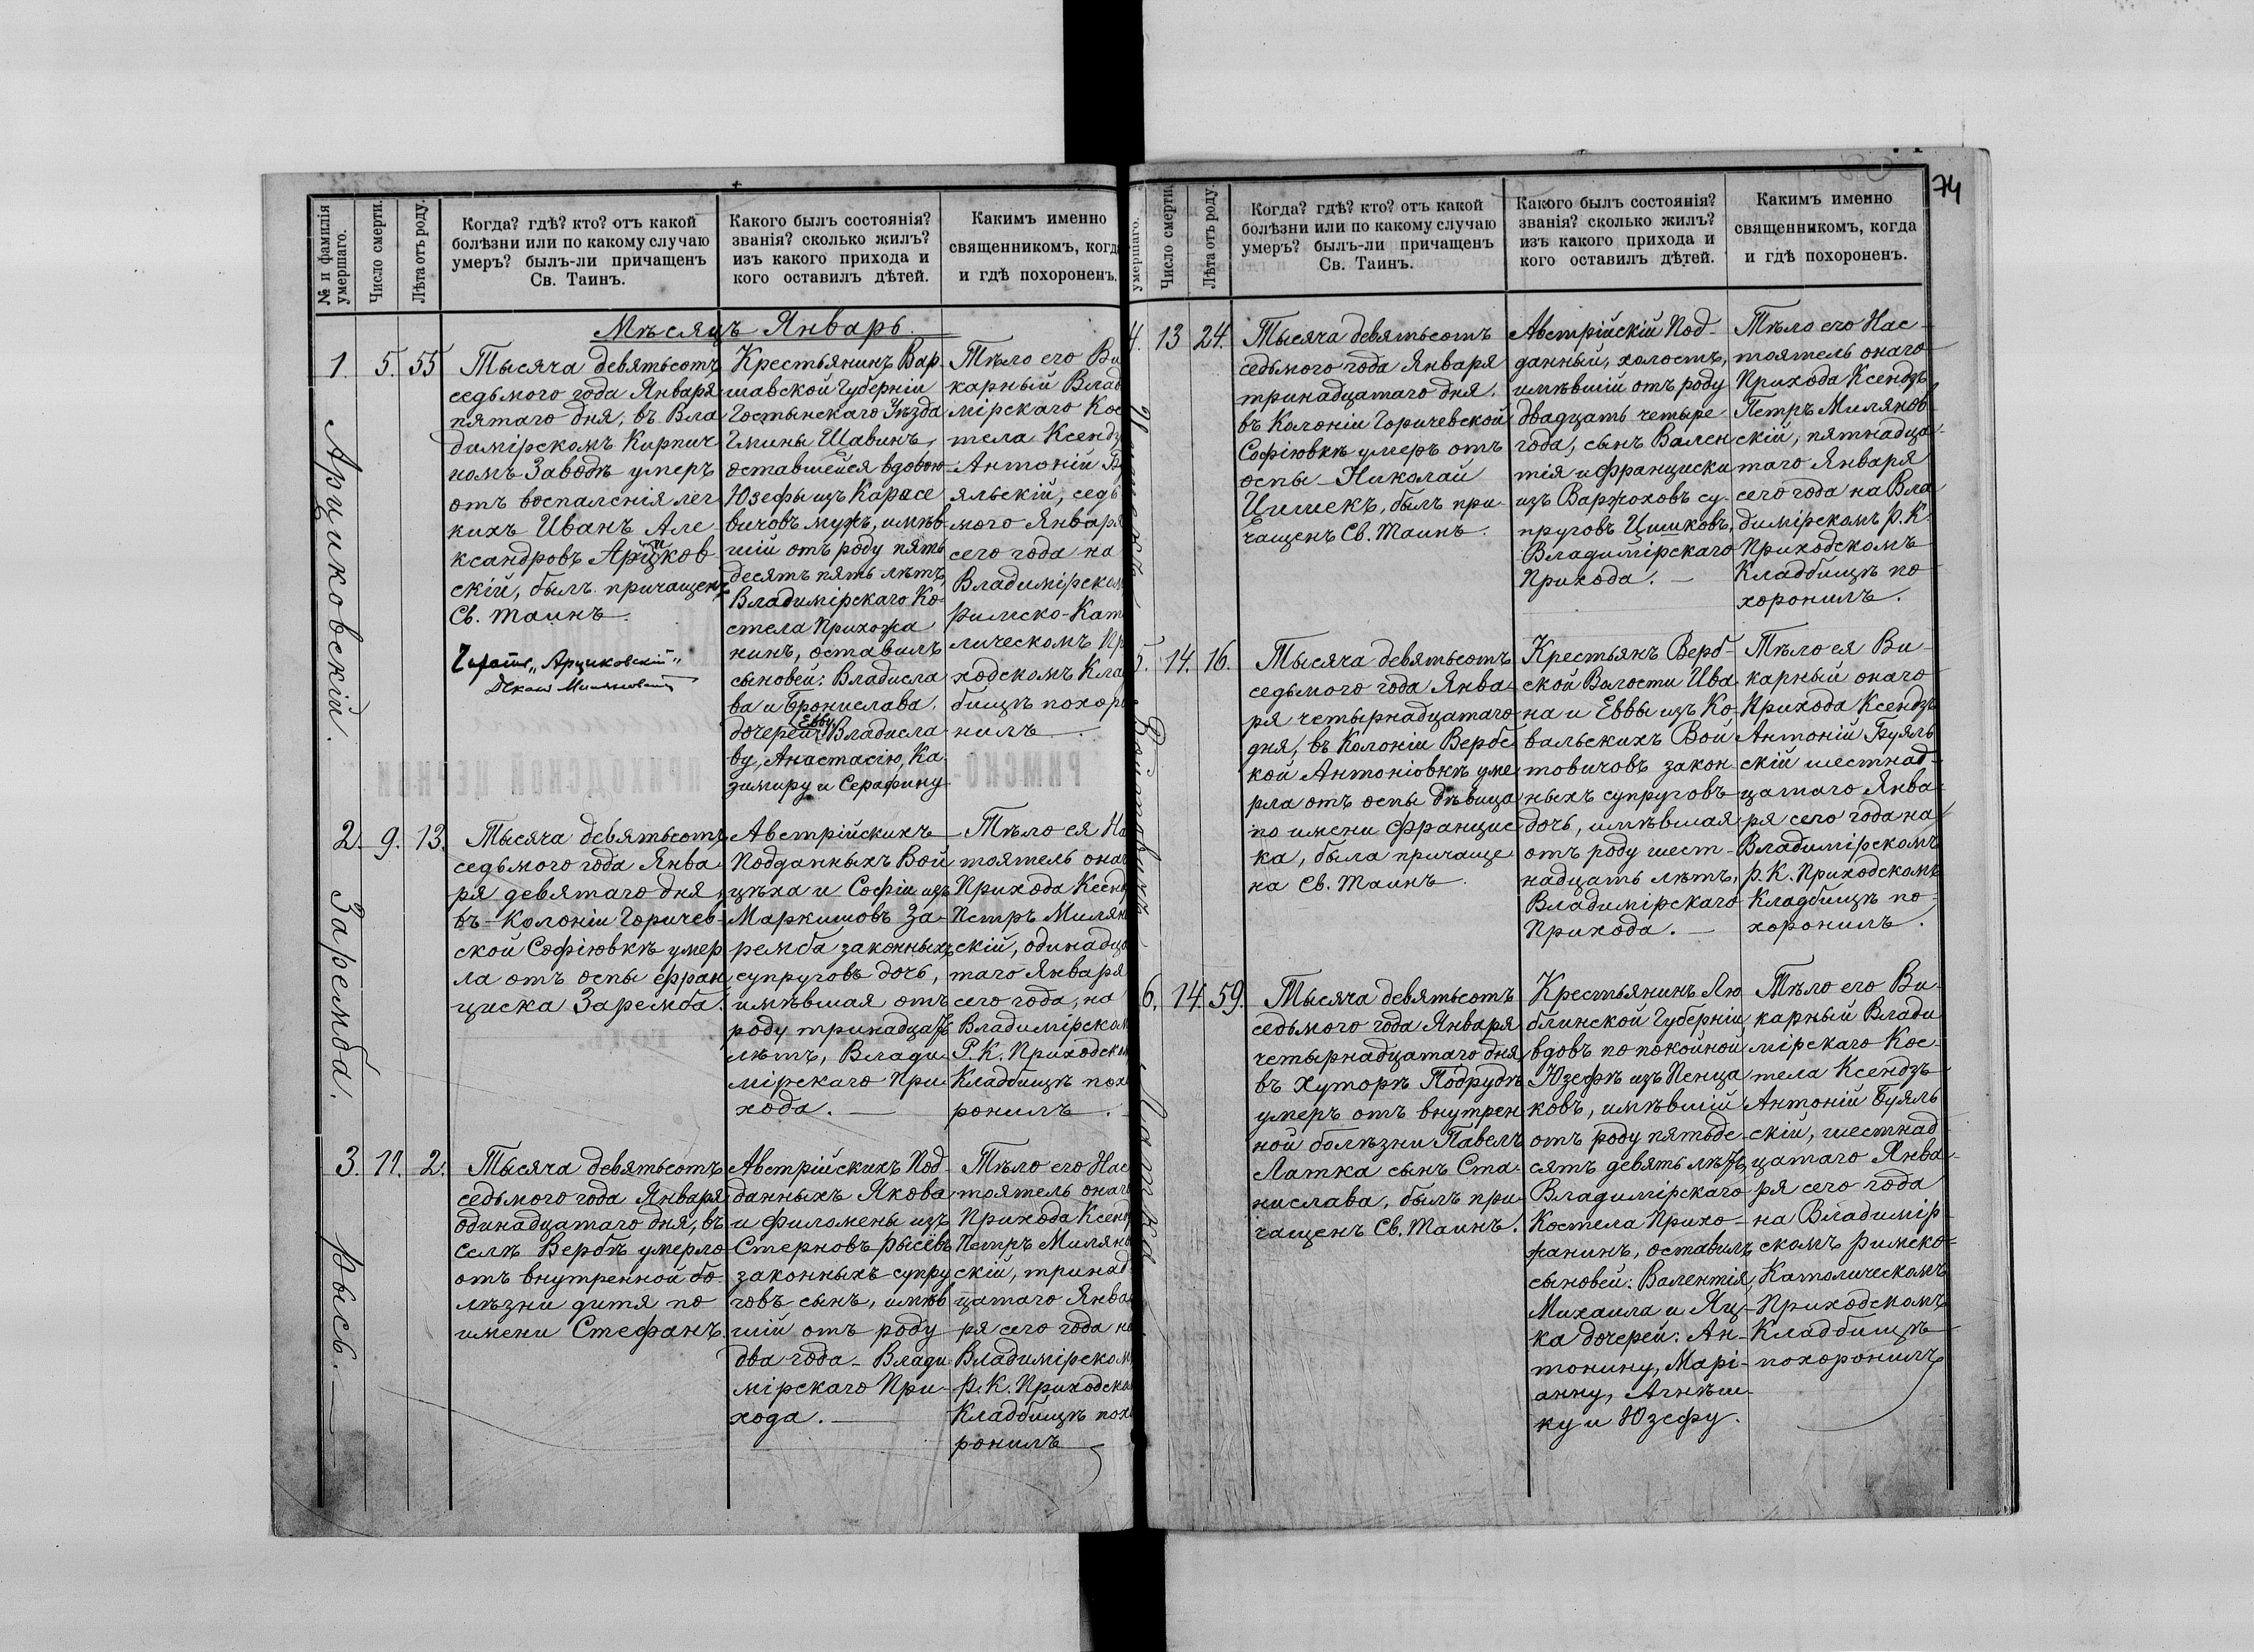 74
№ и фамилія умершаго.
Число смерти.
Лѣта отъ роду.
Когда? гдѣ? кто? отъ какой
болѣзни или по какому случаю
умеръ? былъ-ли причащенъ
Св. Таинъ.
Какого былъ состоянія?
званія? сколько жилъ?
изъ какого прихода и
кого оставилъ дѣтей.
Какимъ именно
священникомъ, когда
и гдѣ похороненъ.
Мѣсяцъ Январь.
1.
Арциковскій.
5.
55
Тысяча девятьсотъ
седьмого года Января
пятаго дня, въ Вла
димірскомъ Кирпич
номъ Заводѣ умеръ
отъ воспаленія лег
кихъ Иванъ Але
ксандровъ Арцъков
скій, былъ причащенъ
Св. Таинъ.
"Арциковскій"
Крестьянинъ Вар-
шавской Губерніи
Гостынскаго Уѣзда
Гмины Щавинъ,
оставшейся вдовою
Юзефы изъ Карасе
вичовъ мужъ, имѣв
шій отъ роду пять
десятъ пять лѣтъ,
Владимірскаго Ко-
стела Прихожа
нинъ, оставилъ
сыновей: Владисла
ва и Бронислава,
дочерей: Евву, Владисла
ву, Анастасію, Ка
зимиру и Серафину
Тѣло его Ви
карный Влад
мірскаго Кос
тела Ксендзъ
Антоній Б
яльскій, седь
мого Января
сего года на
Владимірском
Римско-Кат
лическомъ Пр
ходскомъ Кла
бищѣ похор
нилъ.
2.
Заремба.
9.
13.
Тысяча девятьсотъ
седьмого года Янва
ря девятаго дня
въ Колоніи Горичев-
ской Софіювкѣ умер
ла отъ оспы Фран
циска Заремба.
Австрійскихъ
Подданныхъ Вой
цѣха и Софіи изъ
Маркишовъ За-
ремба законныхъ
супруговъ дочь,
имѣвшая отъ
роду тринадцать
лѣтъ, Влади
мірскаго При
хода.
Тѣло ея На
тоятель онаг
Прихода Ксенд
Петръ Милян
скій, одинадца
таго Января
сего года, на
Владимірском
Р. К. Приходском
Кладбищѣ пох
ронилъ.
3.
Рысь.
11.
2.
Тысяча девятьсотъ
седьмого года Января
одинадцатаго дня, въ
селѣ Вербѣ умерло
отъ внутренной бо
лѣзни дитя по
имени Стефанъ.
Австрійскихъ Под-
данныхъ Якова
и Филомены изъ
Стерновъ Рысёвъ
законныхъ супру
говъ сынъ, имѣв
шій отъ роду
два года Влади
мірскаго При-
хода.
Тѣло его Нас
тоятель онаго
Прихода Ксенд
Петръ Милянов
скій, тринад
цатаго Янва
ря сего года на
Владимірском
Р. К. Приходском
Кладбищѣ пох
ронилъ
умершаго.
Число смерти.
Лѣта отъ роду.
Когда? гдѣ? кто? отъ какой
болѣзни или по какому случаю
умеръ? былъ-ли причащенъ
Св. Таинъ.
Какого былъ состоянія?
званія? сколько жилъ?
изъ какого прихода и
кого оставилъ дѣтей.
Какимъ именно
священникомъ, когда
и гдѣ похороненъ.
4.
13
24.
Тысяча девятьсотъ
седьмого года Января
тринадцатаго дня.
въ Колоніи Горичевской
Софіювкѣ умеръ отъ
оспы Николай
Цишекъ, былъ при
чащенъ Св. Таинъ.
Австрійскій Под-
данный, холостъ,
имѣвшій отъ роду
двадцать четыре
года, сынъ Вален
тія и Франциски
изъ Варжоховъ су-
пруговъ Цишковъ,
Владимірскаго
Прихода.
Тѣло его Нас-
тоятель онаго
Прихода Ксендзъ
Петръ Милянов
скій, пятнадца-
таго Января
сего года на Вла
димірскомъ Р. К.
Приходскомъ
Кладбищѣ по
хоронилъ.
5.
Войтовичъ
14.
16.
Тысяча девятьсотъ
седьмого года Янва-
ря четырнадцатаго
дня, въ Колоніи Вербс
кой Антоніовкѣ уме
рла отъ оспы дѣвица
по имени Францис
ка, была причаще
на Св. Таинъ.
Крестьянъ Верб-
ской Волости Ива
на и Еввы изъ Ко-
вальскихъ Вой
товичовъ закон
ныхъ супруговъ
дочь, имѣвшая
отъ роду шест-
надцать лѣтъ,
Владимірскаго
Прихода.
Тѣло ея Ви-
карный онаго
Прихода Ксендзъ
Антоній Буяль
скій шестнад-
цатаго Янва-
ря сего года на
Владимірскомъ
Р. К. Приходскомъ
Кладбищѣ по-
хоронилъ.
6.
Латка
14.
59.
Тысяча девятьсотъ
седьмого года Января
четырнадцатаго дня
въ Хуторѣ Подрудѣ
умеръ отъ внутрен
ной болѣзни Павелъ
Латка сынъ Ста-
нислава, былъ при
чащенъ Св. Таинъ.
Крестьянинъ Лю
блинской Губерніи,
вдовъ по покойной
Юзефѣ изъ Пенца
ковъ, имѣвшій
отъ роду пятьде-
сятъ девять лѣтъ,
Владимірскаго
Костела Прихо-
жанинъ, оставилъ
сыновей: Валентія,
Михаила и Яц-
ка дочерей: Ан-
тонину, Марі-
анну, Агнѣш-
ку и Юзефу.
Тѣло его Ви-
карный Влади
мірскаго Кос-
тела Ксендзъ
Антоній Буяль
скій, шестнад
цатаго Янва-
ря сего года
на Владимір-
скомъ Римско-
Католическомъ
Приходскомъ
Кладбищѣ
похоронилъ